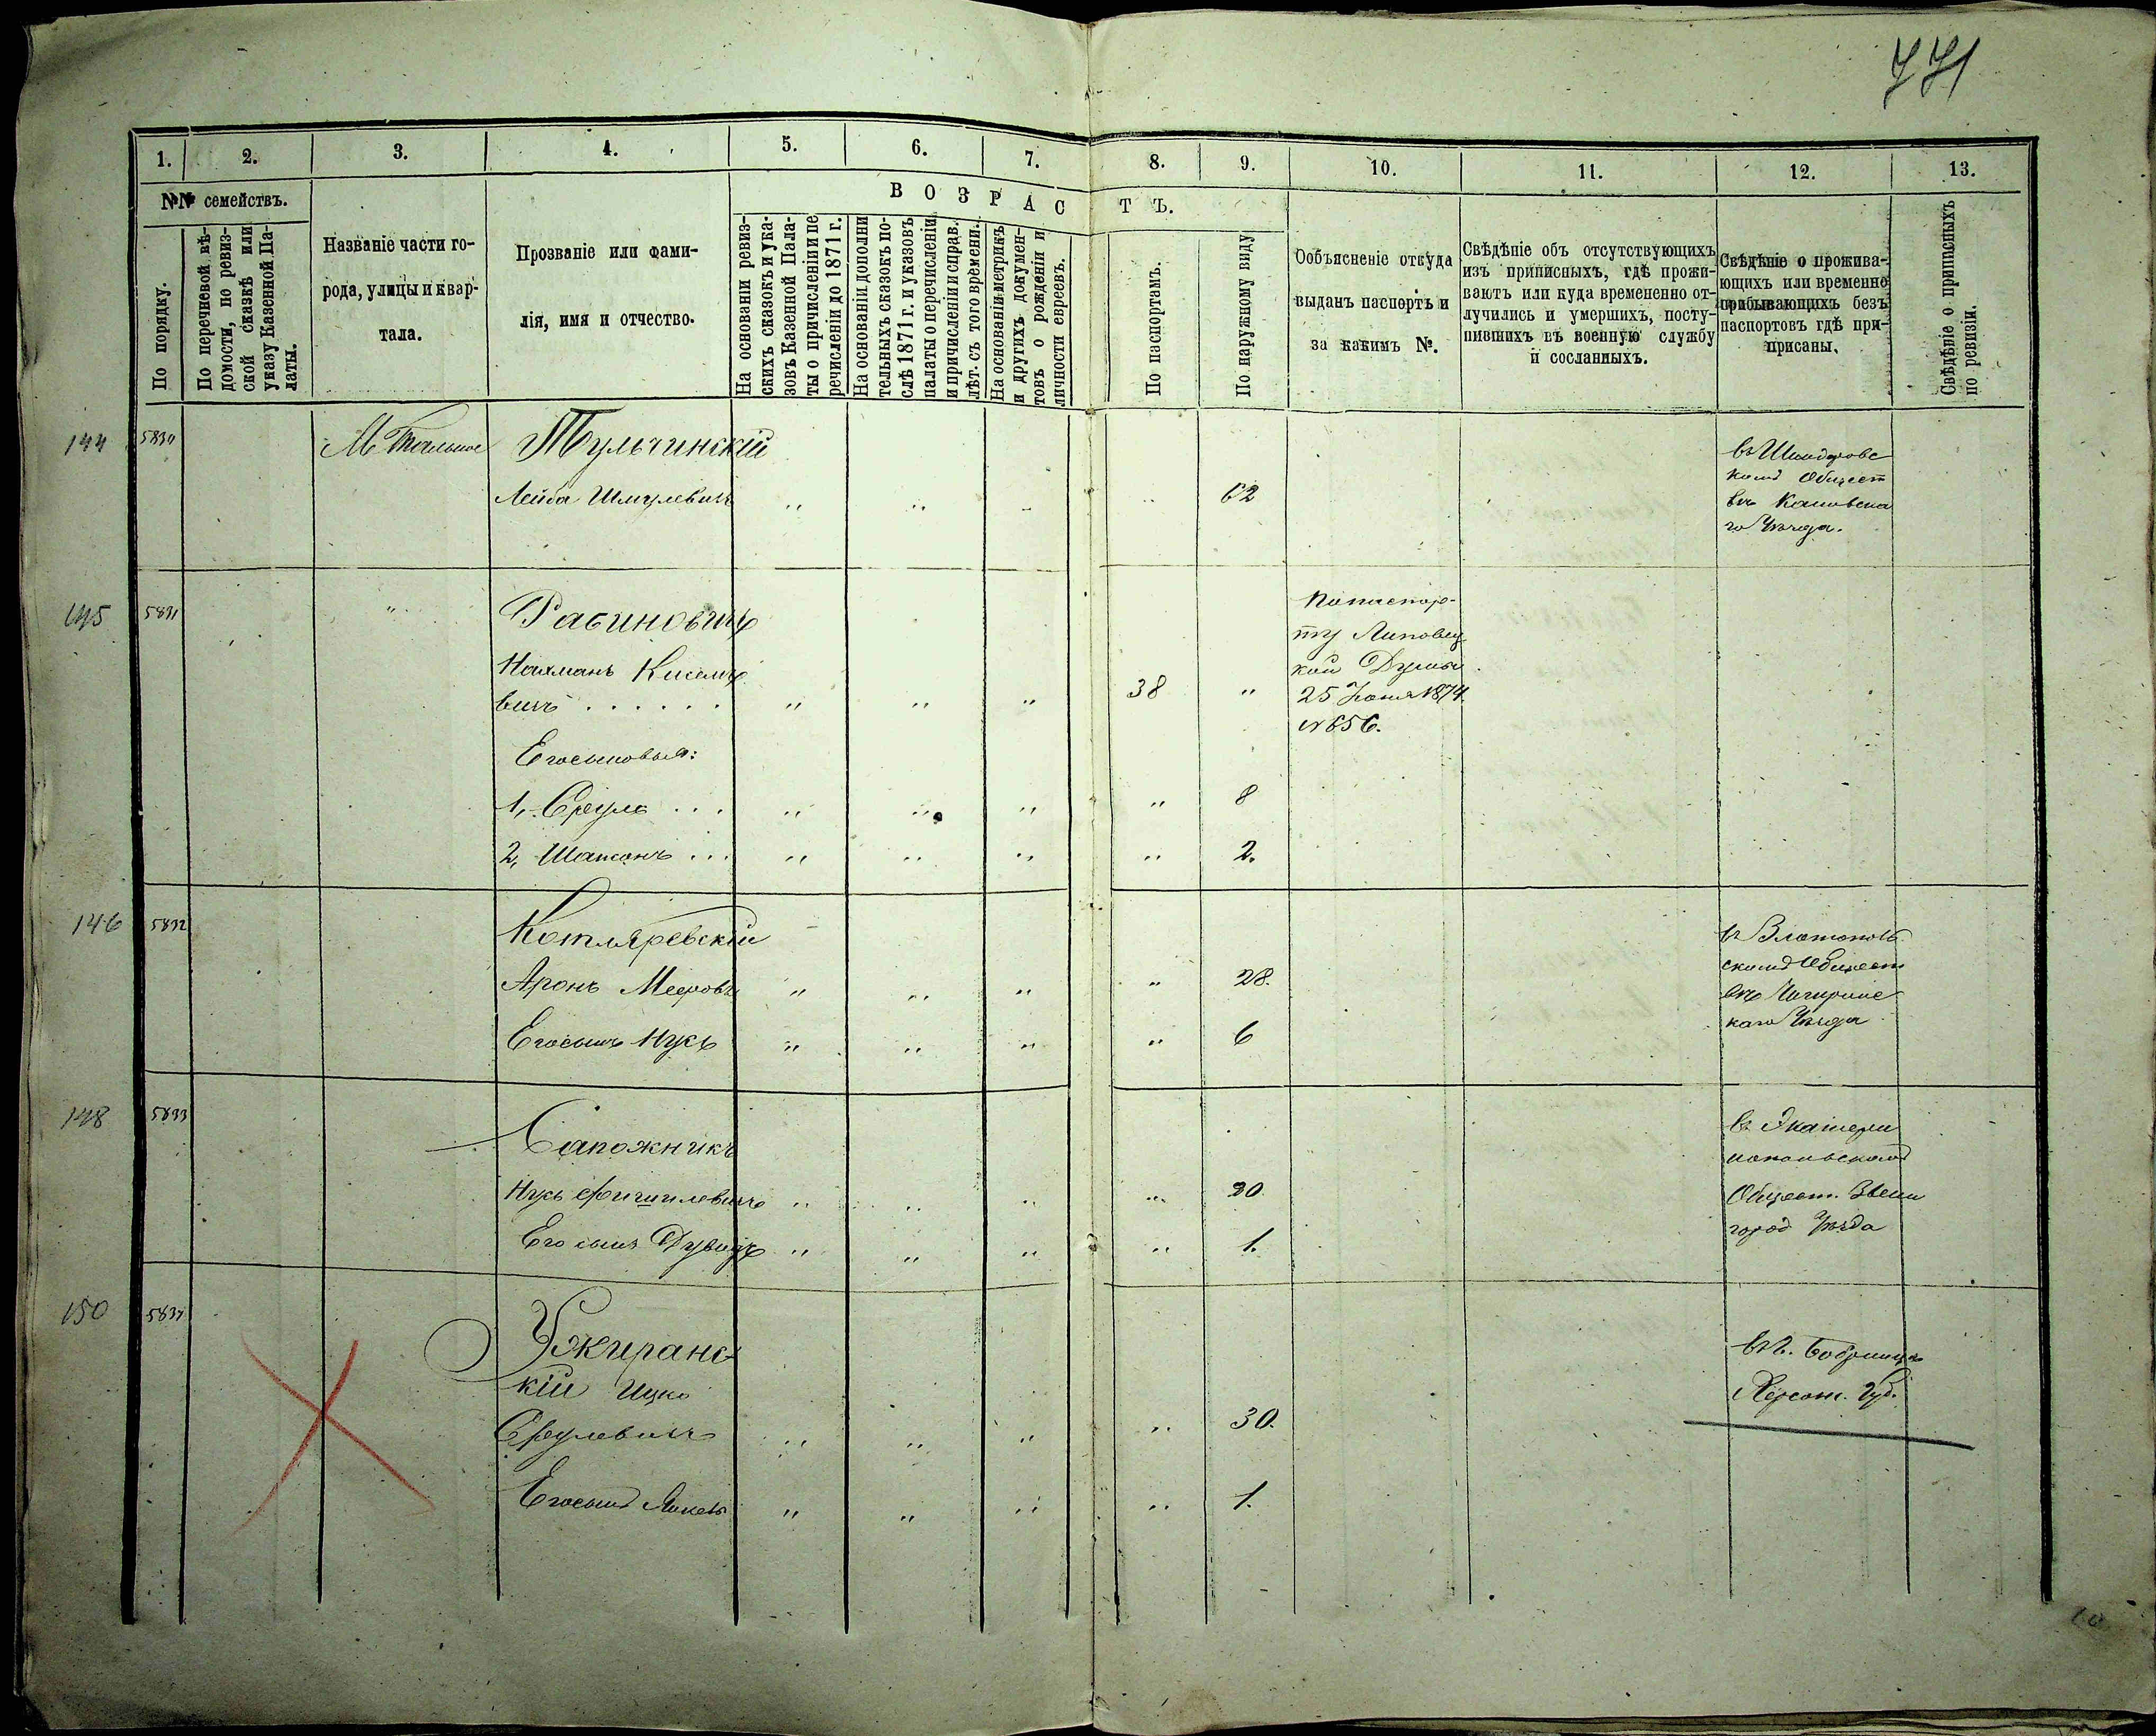 771
1. 2. 3. 4. 5. 6. 7. 8. 9. 10. 11. 12. 13.
№№ семействъ.
По порядку.
По перечневой вѣ-
домости, по ревиз-
ской сказкѣ или
указу Казенной Па-
латы.
Названіе части го-
рода, улицы и квар-
тала.
Прозваніе или фами-
лія, имя и отчество.
ВОЗРАСТЪ.
На основаніи ревиз-
скихъ сказокъ и ука-
зовъ Казенной Пала-
ты о причисленіи и пе
речисленіи до 1871 г.
На основаніи дополни
тельныхъ сказокъ по-
слѣ 1871 г. и указовъ
палаты о перечисленіи
и причисленіи и справ.
лѣт. съ того времени.
На основаніи метрикъ
и другихъ докумен-
товъ о рожденіи и
личности евреевъ.
По паспортамъ.
По наружному виду
Ообъясненіе откуда
выданъ паспортъ и
за какимъ №.
Свѣдѣніе объ отсутствующихъ
изъ приписныхъ, гдѣ прожи-
ваютъ или куда временено от-
лучились и умершихъ, посту-
пившихъ въ военную службу
и сосланныхъ.
Свѣдѣніе о прожива-
ющихъ или временно
прибывающихъ безъ
паспортовъ гдѣ при-
писаны.
Свѣдѣніе о приписныхъ
по ревизіи.
144 5830 М. Тальное Тульчинскій
Лейба Шмулевичъ „ „ „ „ 62
въ Шендеровс
комъ Общест
вѣ Каневска
го Уѣзда.
145 5831 „ Рабиновичъ
Нахманъ Киселе
вичъ . . . . . . „ „ „ 38 „
По паспор-
ту Липовец
кой Думы
25 Іюня 1874.
№ 656.
Его сыновья:
1, Сруль . . . „ „ „ „ 8
2, Шапсонъ . . . „ „ „ „ 2.
146 5832 Котляревскій
Аронъ Мееровъ „ „ „ „ 28.
Его сынъ Нусъ „ „ „ „ 6
въ Златополь
скомъ Общест
вѣ Чигиринс
каго Уѣзда
148 5833 Сапожникъ
Нусъ Фишилевичъ „ „ „ „ 20.
Его сынъ Дувидъ „ „ „ „ 1.
въ Екатери
нопольскомъ
Общест. Звени
город Уѣзда
150 5834 Ужиранс
кій Ицко
Срулевичъ „ „ „ „ 30.
Его сынъ Янкель „ „ „ „ 1.
въ г. Бобринцѣ
Херсон. Губ.